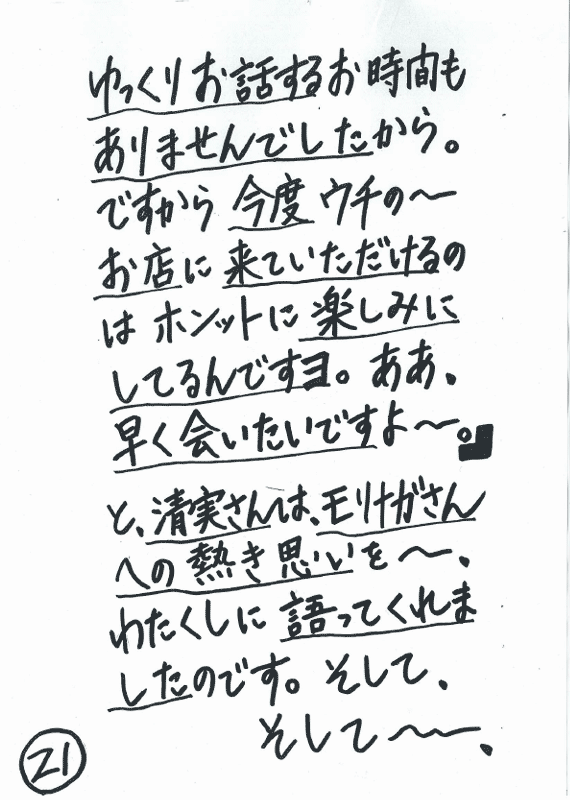 ゆっくりお話するお時間も
ありませんでしたから。
ですから今度ウチの〜
お店に来ていただけるの
はホンットに楽しみに
してるんですヨ。ああ、
早く会いたいですよ〜。」
と、清実さんは、モリナガさん
への熱き思いを〜、
わたくしに語ってくれま
したのです。そして、
そして〜〜、
21